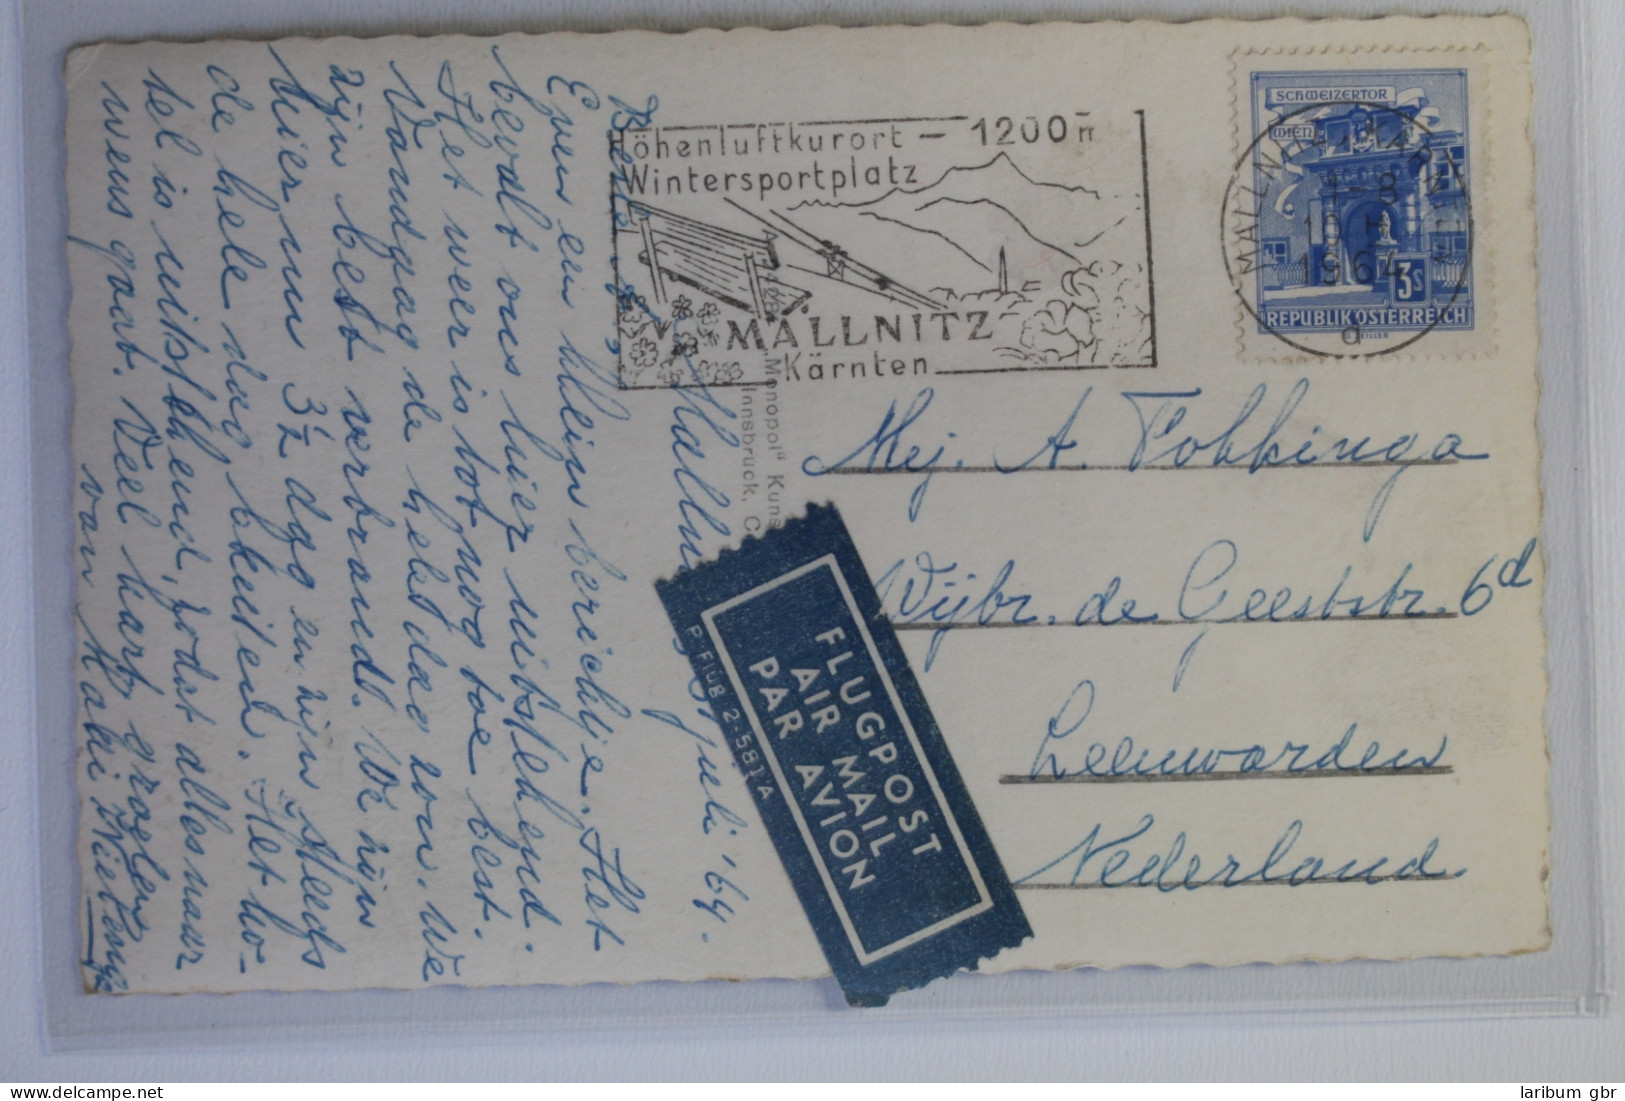 Mallnitz, juli '64.
Even een klein berichtje. Het
bevalt ons hier uitstekend.
Het weer is tot nog toe best.
Vandaag de hele dag zon. We
zijn best verbrand. We zijn
hier nu 3½ dag en zijn steeds
de hele dag buiten. Het ho-
tel is uitstekend, zodat alles naar
wens gaat. Veel hart. groeten
van
Höhenluftkurort – 1200 m
Wintersportplatz
MALLNITZ
Kärnten
SCHWEIZERTOR
WIEN
3s
REPUBLIK ÖSTERREICH
MALLNITZ
1-8
10
1964
a
"Monopol" Kuns
Innsbruck,
Mej. A. Fokkinga
Wijbr. de Geeststr. 6d
Leeuwarden
Nederland.
FLUGPOST
AIR MAIL
PAR AVION
P FlUB 2-581A
laribum gbr